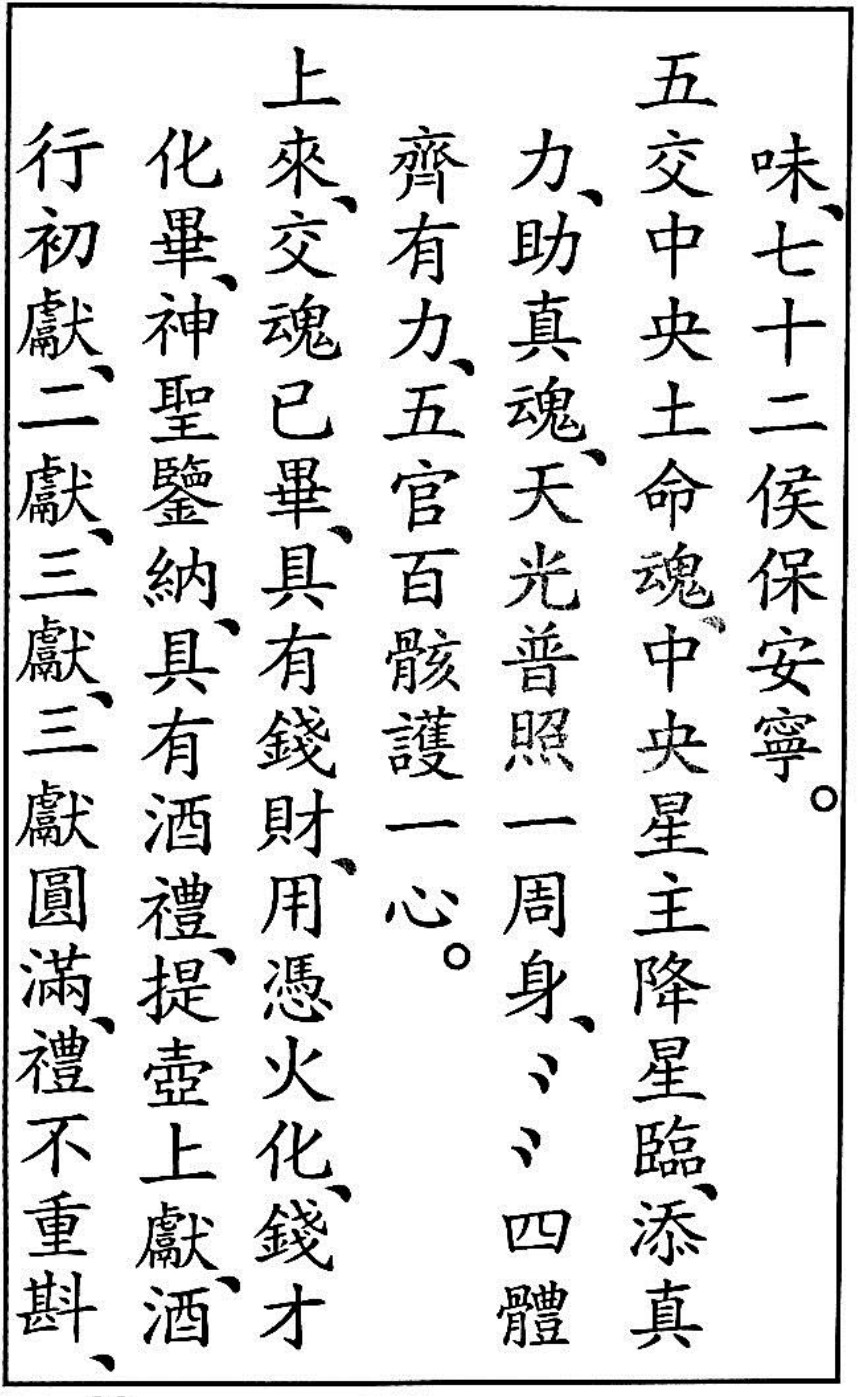 味、七十二侯保安寧。
五交中央土命魂、中央星主降星臨、添真
力、助真魂、天光普照一周身、〻〻四體
齊有力、五官百骸護一心。
上來、交魂已畢、具有錢財、用憑火化、錢才
化畢、神聖鑒納、具有酒禮、提壺上獻、酒
行初獻、二獻、三獻、三獻圓滿、禮不重斟、